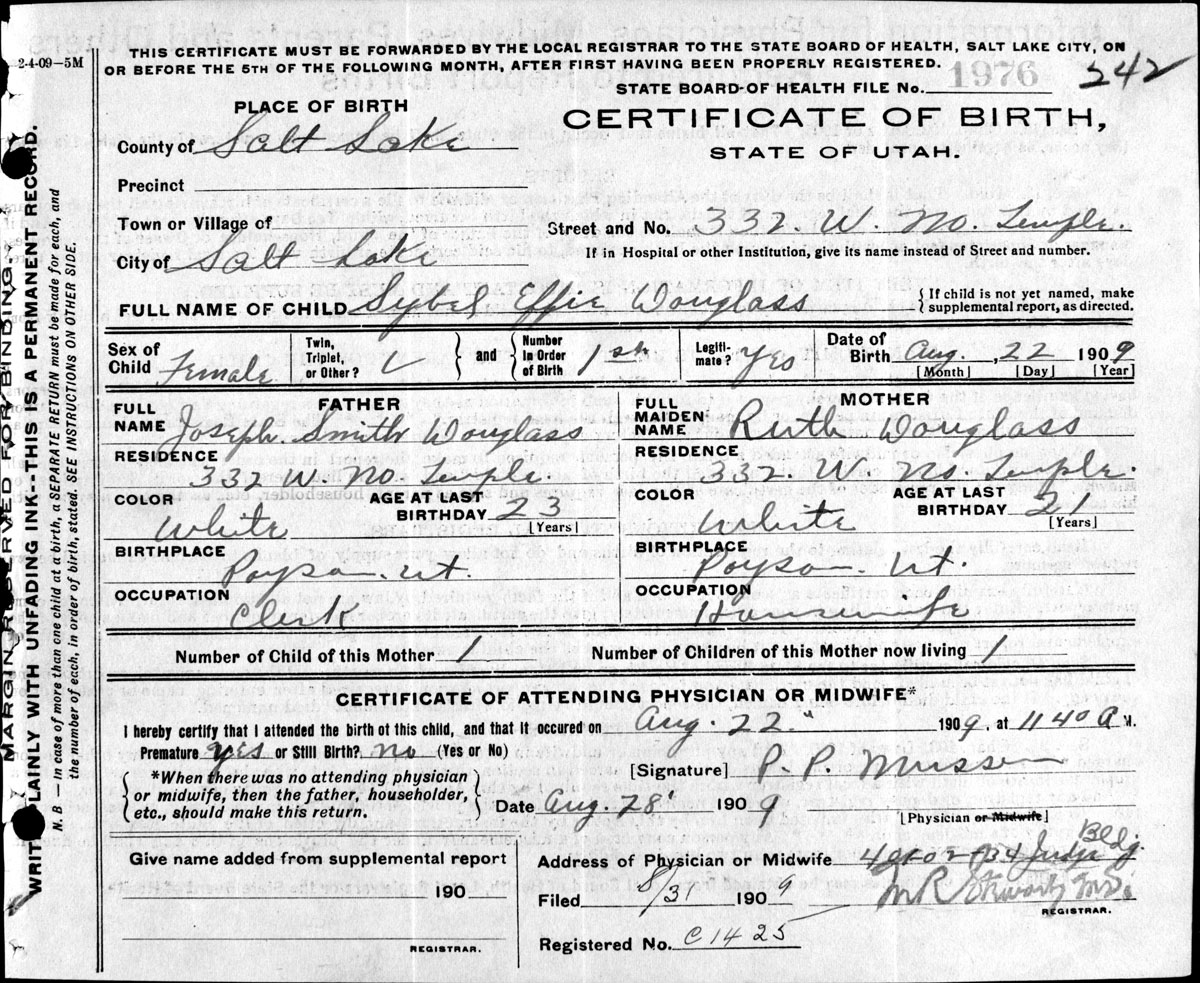 2-4-09—5M
THIS CERTIFICATE MUST BE FORWARDED BY THE LOCAL REGISTRAR TO THE STATE BOARD OF HEALTH, SALT LAKE CITY, ON
OR BEFORE THE 5TH OF THE FOLLOWING MONTH, AFTER FIRST HAVING BEEN PROPERLY REGISTERED.
STATE BOARD OF HEALTH FILE No. 1976 242
PLACE OF BIRTH
CERTIFICATE OF BIRTH,
STATE OF UTAH.
County of Salt Lake
Precinct
Town or Village of
Street and No. 332. W. No. Temple.
City of Salt Lake
If in Hospital or other Institution, give its name instead of Street and number.
FULL NAME OF CHILD Sybel Effie Douglass
If child is not yet named, make
supplemental report, as directed.
Sex of
Child Female
Twin,
Triplet,
or Other?
and
Number
in Order
of Birth 1st
Legiti-
mate? Yes
Date of
Birth Aug. , 22 1909
[Month] [Day] [Year]
FATHER
FULL
NAME Joseph Smith Douglass
RESIDENCE
332 W No. Temple.
COLOR
White
AGE AT LAST
BIRTHDAY 23
[Years]
BIRTHPLACE
Payson. Ut.
OCCUPATION
Clerk
MOTHER
FULL
MAIDEN
NAME Ruth Douglass
RESIDENCE
332. W. No Temple.
COLOR
White
AGE AT LAST
BIRTHDAY 21
[Years]
BIRTHPLACE
Payson Ut.
OCCUPATION
Housewife
Number of Child of this Mother 1 Number of Children of this Mother now living 1
CERTIFICATE OF ATTENDING PHYSICIAN OR MIDWIFE*
I hereby certify that I attended the birth of this child, and that it occured on Aug. 22" 1909, at 11 40 A M.
Premature yes or Still Birth? no (Yes or No)
[Signature] P. P. Musser
*When there was no attending physician
or midwife, then the father, householder,
etc., should make this return.
Date Aug. 28" 1909
[Physician or Midwife]
Give name added from supplemental report
190
REGISTRAR.
Address of Physician or Midwife Judge Bldg.
Filed 8/31 1909
REGISTRAR.
Registered No. C1425
MARGIN RESERVED FOR BINDING.
WRITE PLAINLY WITH UNFADING INK--THIS IS A PERMANENT RECORD.
N. B —In case of more than one child at a birth, a SEPARATE RETURN must be made for each, and
the number of each, in order of birth, stated. SEE INSTRUCTIONS ON OTHER SIDE.